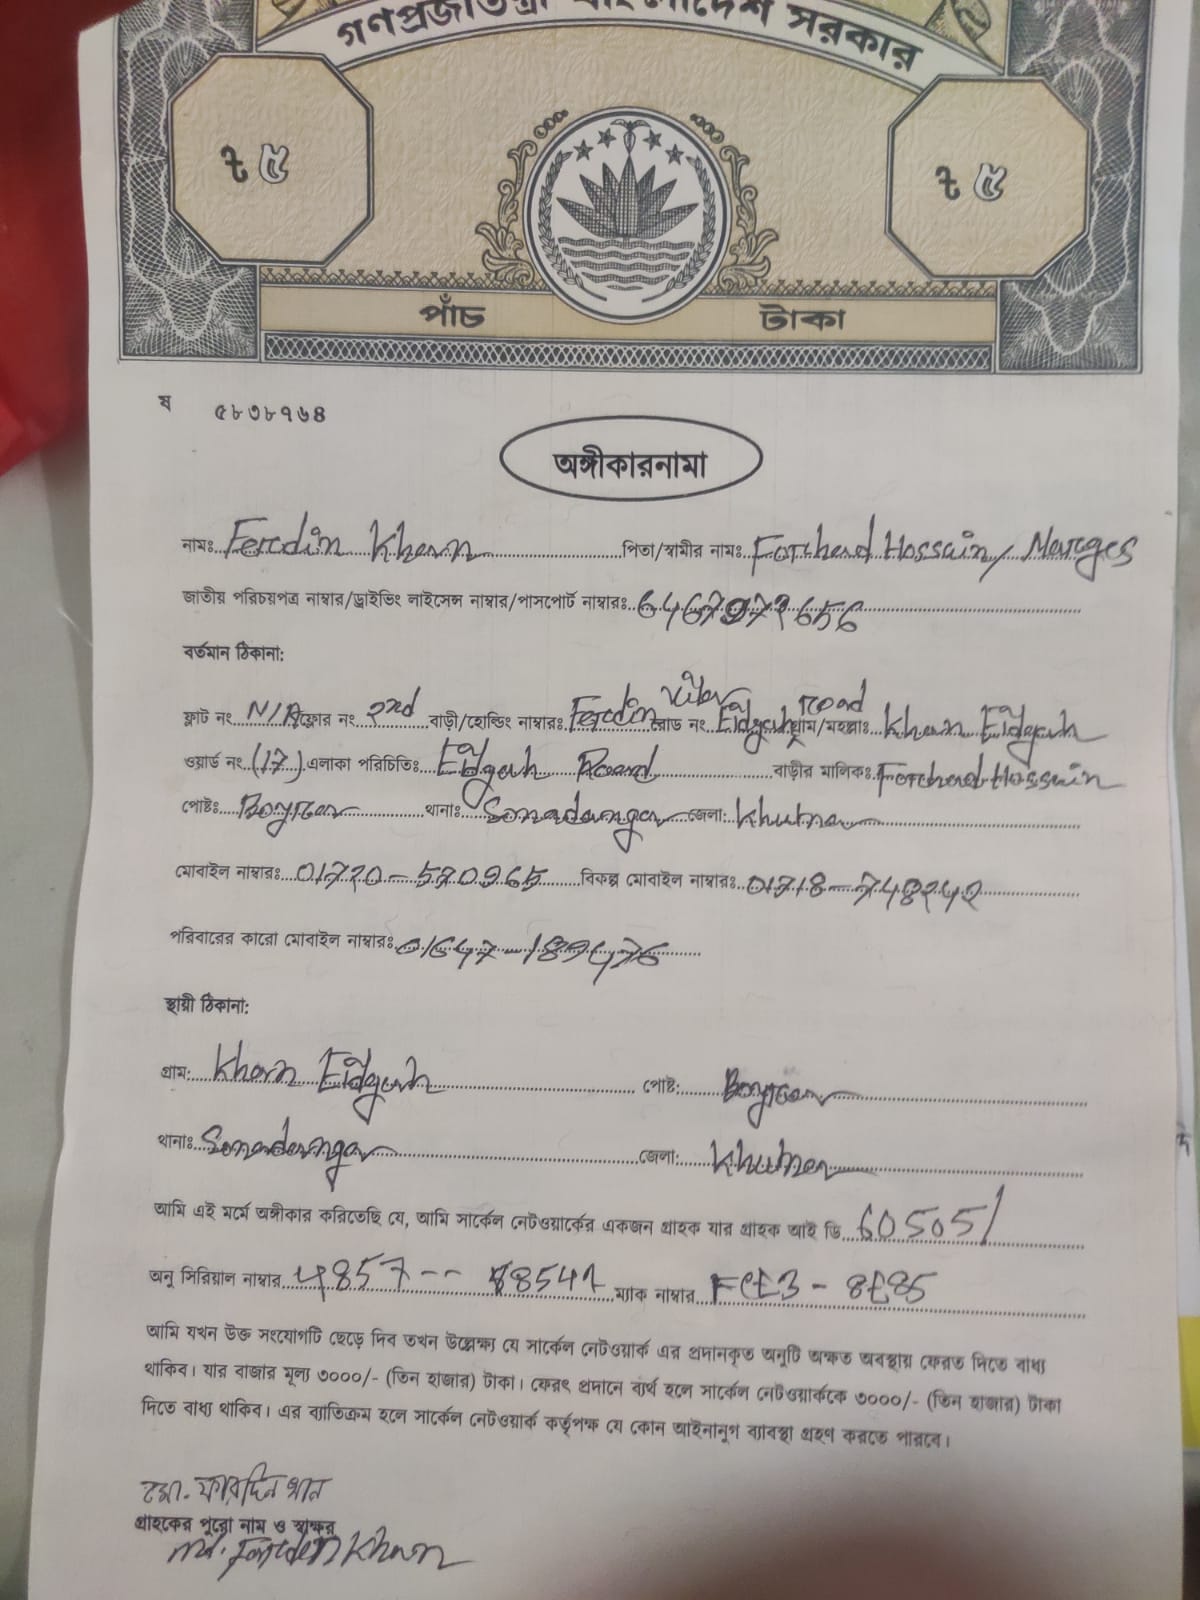 গণপ্রজাতন্ত্রী বাংলাদেশ সরকার
৳ ৫ ৳ ৫
পাঁচ টাকা
ষ ৫৮৩৮৭৬৪
অঙ্গীকারনামা
নামঃ Ferdin Khan পিতা/স্বামীর নামঃ Forhad Hossain/
জাতীয় পরিচয়পত্র নাম্বার/ড্রাইভিং লাইসেন্স নাম্বার/পাসপোর্ট নাম্বারঃ
বর্তমান ঠিকানা:
ফ্লাট নং N/A ফ্লোর নং 2nd বাড়ী/হোল্ডিং নাম্বারঃ রোড নং Eidgah road গ্রাম/মহল্লাঃ Khan Eidgah
ওয়ার্ড নং (17) এলাকা পরিচিতিঃ Eidgah Road বাড়ীর মালিকঃ Forhad Hossain
পোষ্টঃ Boyra থানাঃ Sonadanga জেলা: Khulna
মোবাইল নাম্বারঃ 01720-570965 বিকল্প মোবাইল নাম্বারঃ 01718-748242
পরিবারের কারো মোবাইল নাম্বারঃ 01647-189476
স্থায়ী ঠিকানা:
গ্রাম: Khan Eidgah পোষ্ট: Boyra
থানাঃ Sonadanga জেলা: Khulna
আমি এই মর্মে অঙ্গীকার করিতেছি যে, আমি সার্কেল নেটওয়ার্কের একজন গ্রাহক যার গ্রাহক আই ডি 605051
অনু সিরিয়াল নাম্বার ম্যাক নাম্বার
আমি যখন উক্ত সংযোগটি ছেড়ে দিব তখন উল্লেক্ষ্য যে সার্কেল নেটওয়ার্ক এর প্রদানকৃত অনুটি অক্ষত অবস্থায় ফেরত দিতে বাধ্য
থাকিব। যার বাজার মূল্য ৩০০০/- (তিন হাজার) টাকা। ফেরৎ প্রদানে ব্যর্থ হলে সার্কেল নেটওয়ার্ককে ৩০০০/- (তিন হাজার) টাকা
দিতে বাধ্য থাকিব। এর ব্যাতিক্রম হলে সার্কেল নেটওয়ার্ক কর্তৃপক্ষ যে কোন আইনানুগ ব্যাবস্থা গ্রহণ করতে পারবে।
মো. ফারদিন খান
গ্রাহকের পুরো নাম ও স্বাক্ষর
Md. Farden Khan